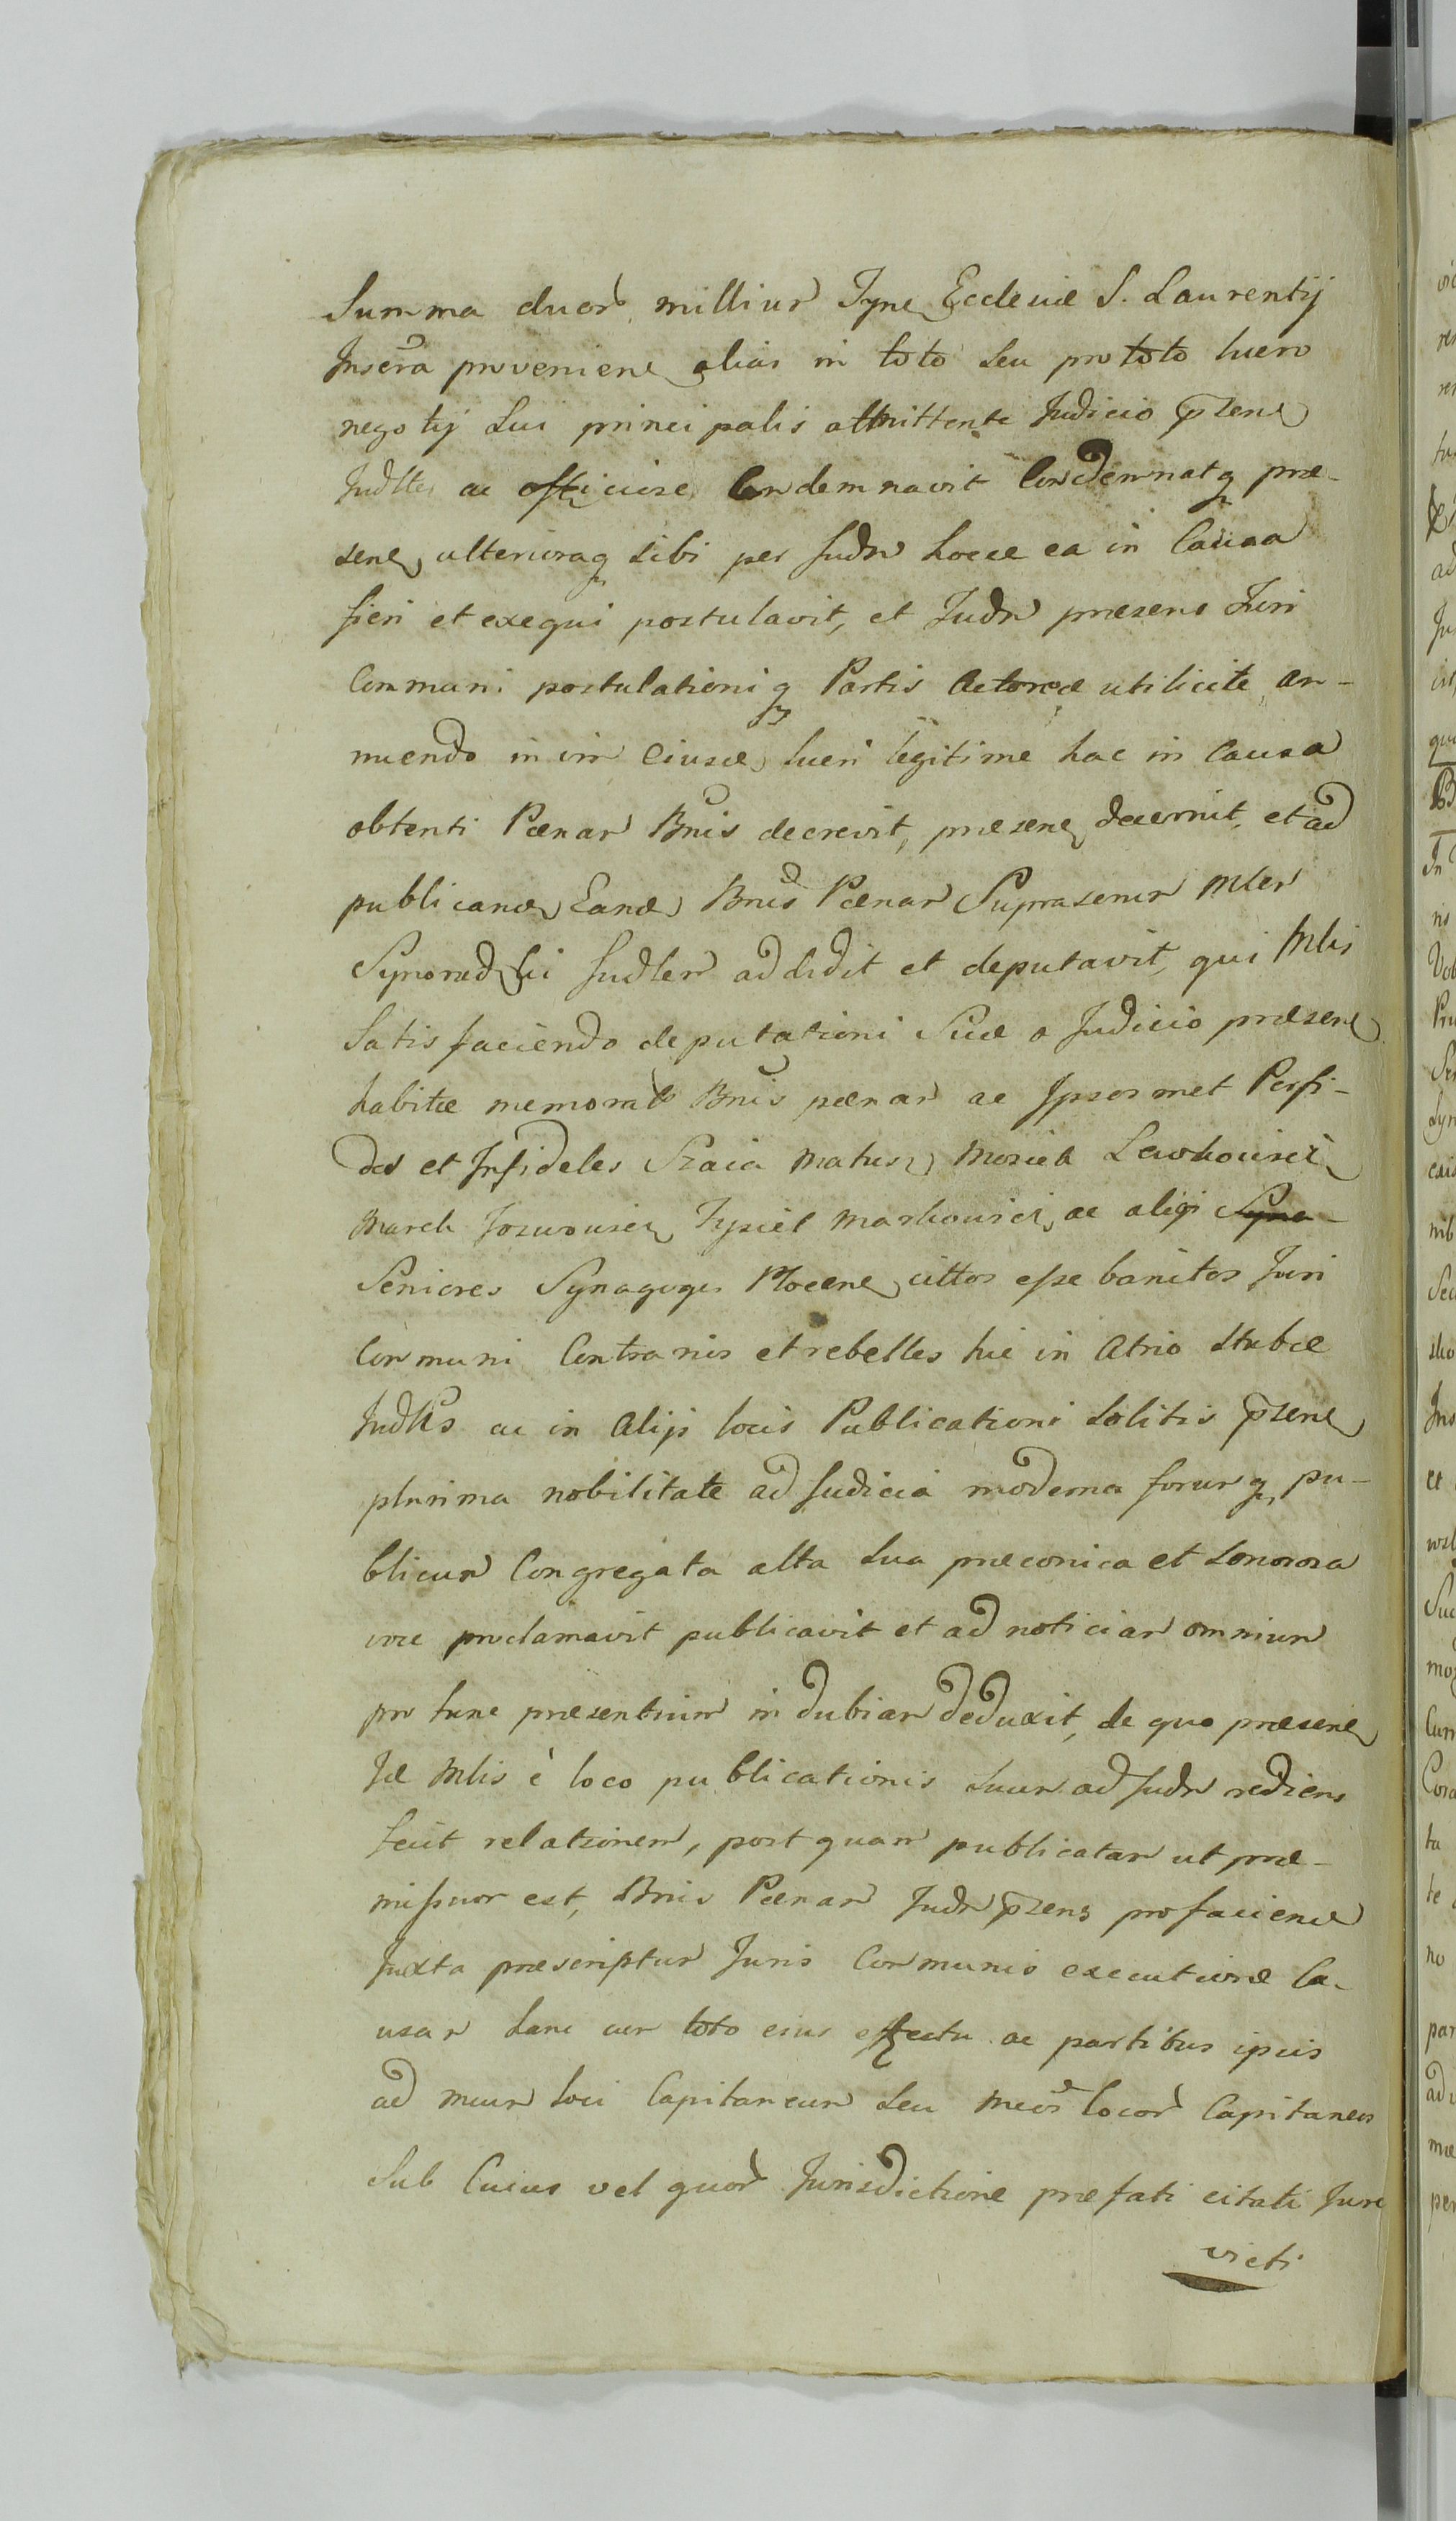 Summa duor millium Tyne Ecclesiæ S. Laurentij
Inscra provenien alias in toto seu pro toto lucro
negotij sui principalis attmittente Judicio pzen
Judlter ac officiose Condemnavit Condemnatq præ-
sen ulterioraq sibi per Judm hocce ea in Causa
fieri et exequi postulavit, et Judm præsens Juri
Communi postulationi q Partis Actoreæ utilicite an-
nuendo in vim Eiusd lucri legitime hac in Causa
obtenti Pœnam Bnis decrevit, præsen decernit, et ad
publicand Eand Bnis Pœnam Suprasenm Mlem
Synorad sui Judlem addidit et deputavit, qui Mlis
Satisfaciendo deputationi Suæ a Judicio præsen
habitæ memorat Bnis pœnam ac Ipsosmet Perfi-
dos et Infideles Szaia Matusz Mosiek Lewkowicz
March Joswowicz Jysiel Markowicz, ac alijs Syna-
Seniores Synagogæ Plocen cittos esse banitos Juri
Communi Contrarios et rebelles hic in Atrio Stubæ
Judlis ac in Alijs locis Publicationi Solitis pzen
plurima nobilitate ad Judicia moderna forumq pu-
blicum Congregata alta Sua præconica et Sonorosa
voce proclamavit publicavit et ad noticiam omnium
pro tunc præsentium indubiam deduxit, de quo præsen
Id Mlis è loco publicationis Suum ad Judm rediens
fecit relationem, post quam publicatam ut præ-
missum est, Bnis Pœnam Judm pzens pro faciend
Juxta præscriptum Juris Communis executione Ca-
usam hanc cum toto eius effectu ac partibus ipsis
ad meum loci Capitaneum Seu meor locor Capitaneos
Sub Cuius vel quor Jurisdictione præfati citati Jure
victi